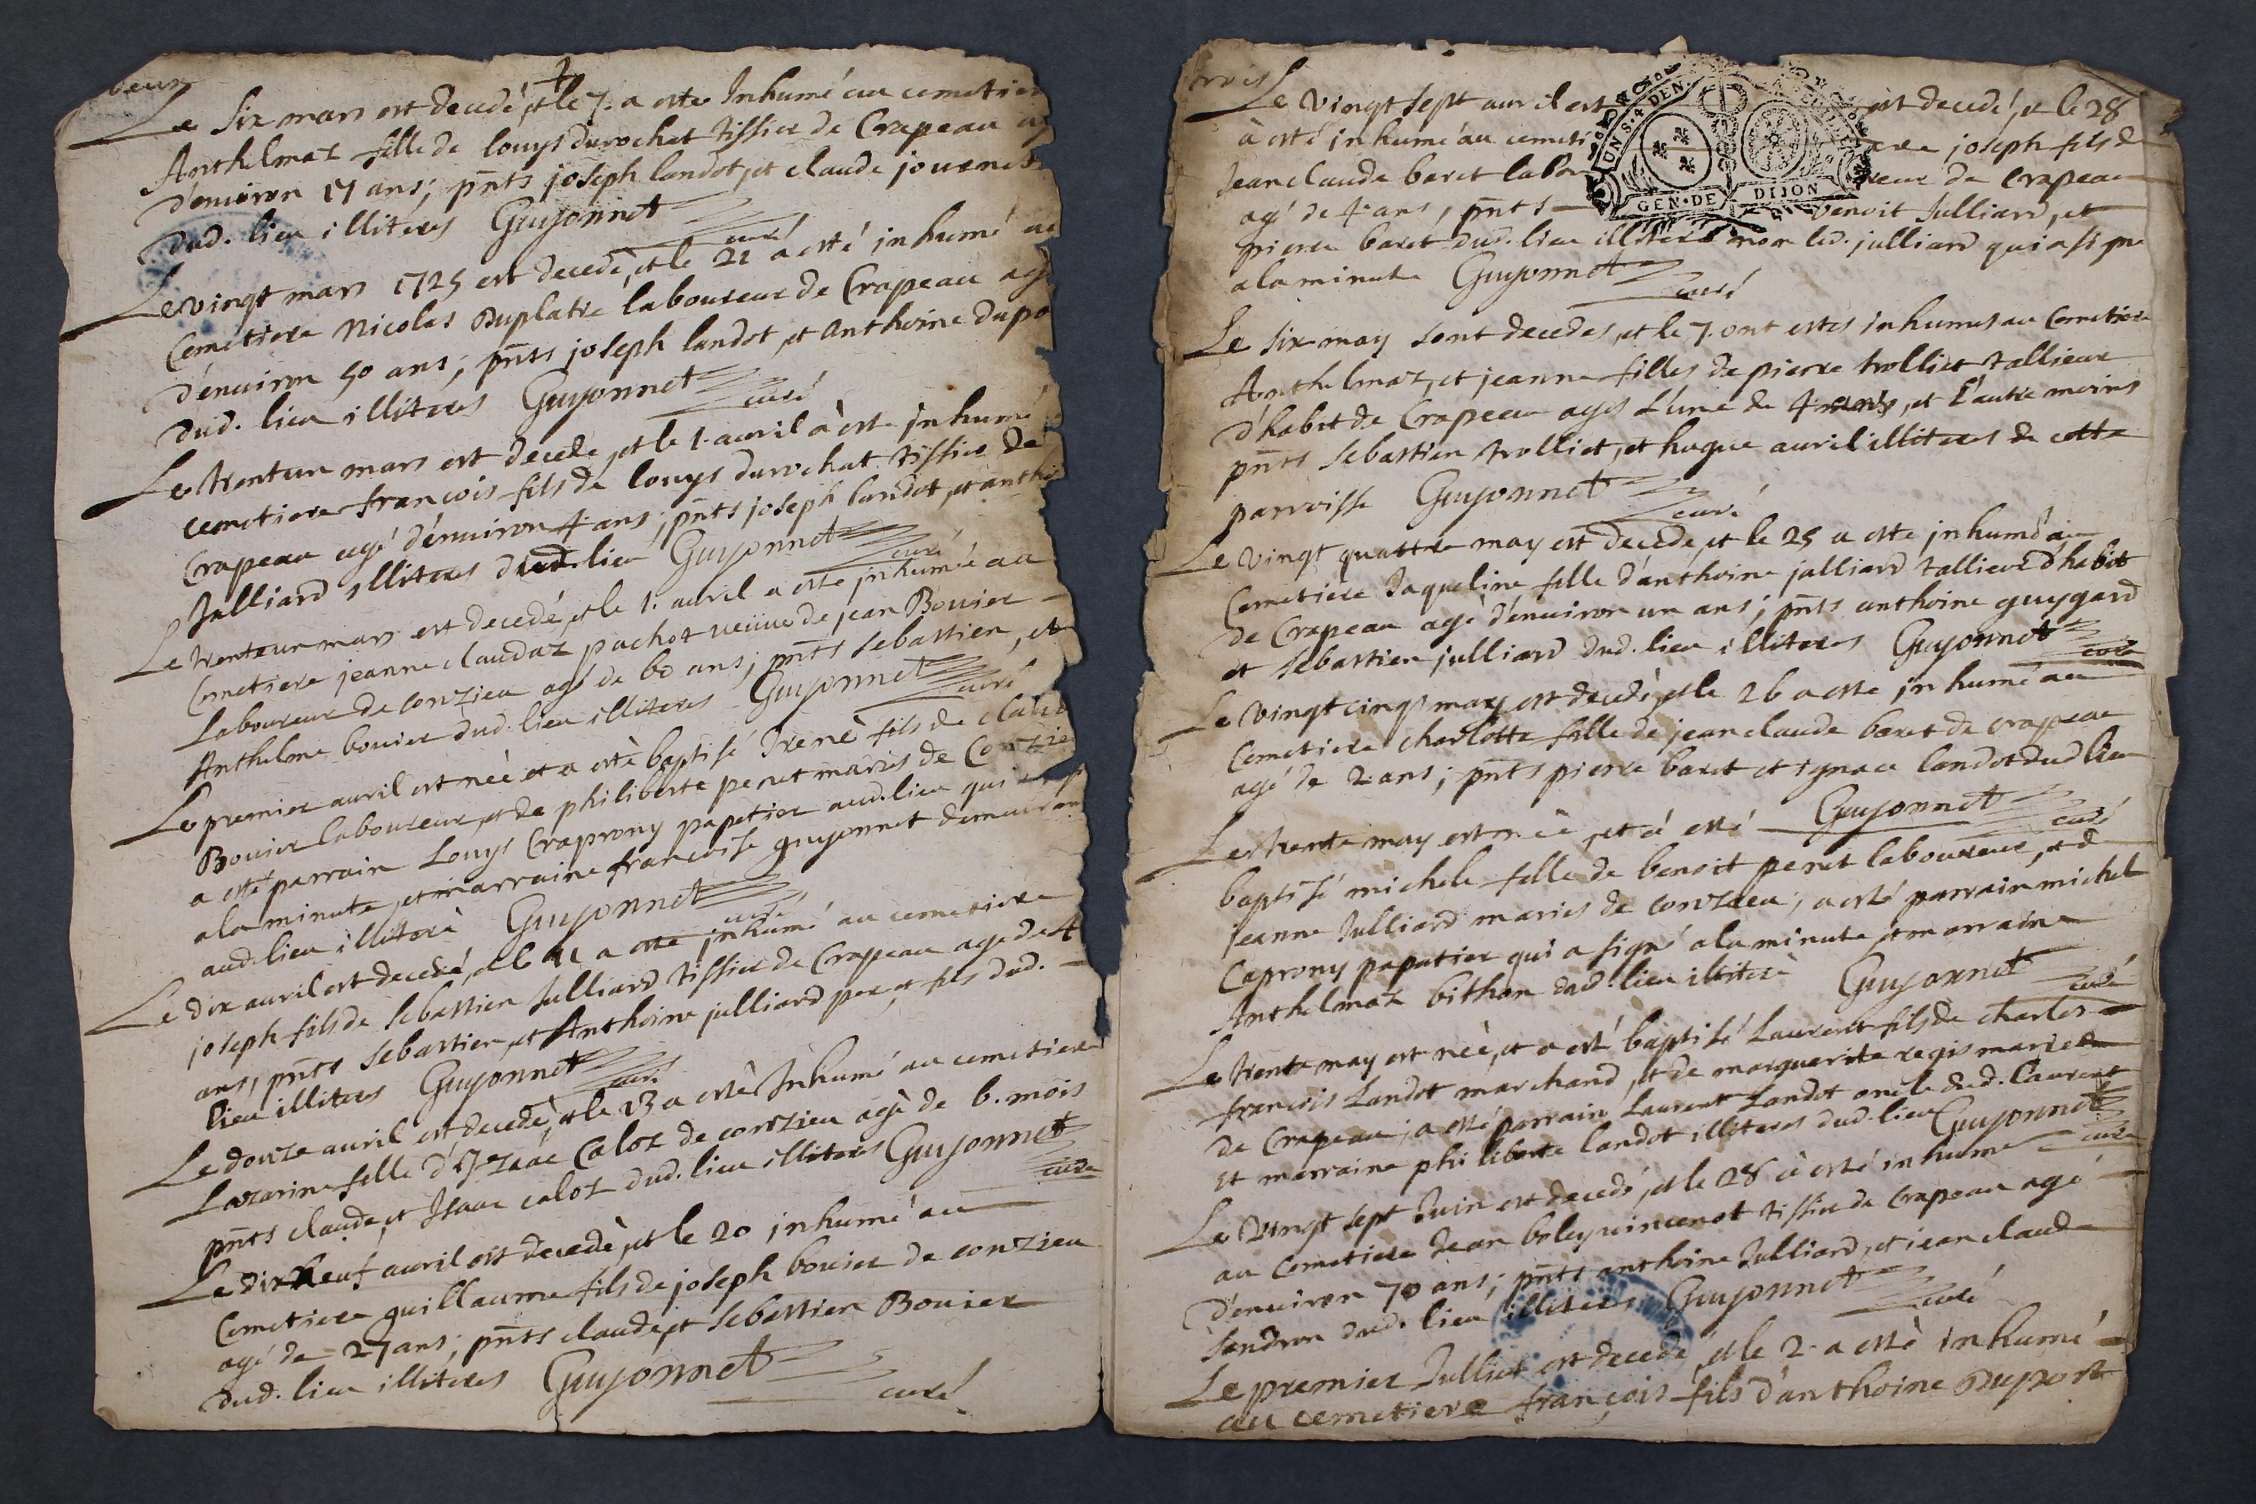 deux
Le Six mars est decedé, et le 7. a este Inhumé au cemetier
Anthelmaz fille de louys durochat tissier de Crapeau
d'enuiron 17 ans; pnts joseph landot, et claude
dud. lieu illiteres Guyonnet curé
Le vingt mars 1725 est decedé, et le 21 a esté inhumé
Cemetiere Nicolas Duplatre laboureur de Crapeau agé
d'enuiron 50 ans; pnts joseph landot, et anthoine dupo
dud. lieu illiteres Guyonnet curé
Le trenteun mars est decede, et le 1. auril à este inhumé
cemetiere françois fils de louys durochat tissier de
Crapeau agé d'enuiron 4 ans; pnts joseph landot, et antho
Julliard illiteres dud. lieu Guyonnet curé
Le trenteun mars est decedé, et le 1. auril a este inhumée au
Cemetiere jeanne claudaz pachot veuue de jean Bouier
Laboureur de conzieu agé de 60 ans; pnts sebastien, et
Anthelme bouier dud. lieu illiteres Guyonnet curé
Le premier auril est neè et a esté baptisé Irené fils de claud
Bouier laboureur, et de philiberte peret mariés de Conzie
a esté parrain Louys Craprony papetier aud. lieu qui
a la minute, et marraine françoise guyonnet demeuran
aud. lieu illiterè Guyonnet curé
Le dix auril est decedé, et le 11 a este inhumé au cemetiere
joseph fils de sebastien Julliard tissier de Crapeau age de 4
ans, pnts sebastien, et Anthoine julliard per, et fils dud.
lieu illiteres Guyonnet curé
Le douze auril est decedé, et le 13 a esté Inhumé au cemetiere
Lazarine fille d'Jzaac Caloz de conzieu agè de 6. mois
pnts claude, et Isaac caloz dud. lieu illiteres Guyonnet curé
Le dixneuf auril est decedè, et le 20 inhumé au
Cemetiere guillaume fils de joseph bouier de conzieu
agé de 27 ans; pnts claude, et sebastien Bouier
dud. lieu illiteres Guyonnet curé
trois
GEN. DE DIJON
Le vingt sept auril est est decedé, et le 28
à esté inhumé au cemeti joseph fils d
Jean claude baret labou reur de Crapeau
agé de 4 ans, pnts benoit Julliard, et
pierre baret dud. lieu illiteré non led. julliard qui a signe
a la minute Guyonnet curé
Le six may sont decedes, et le 7. ont estes inhumes au Cemetiere
Anthelmaz, et jeanne filles de pierre trolliet tallieur
d'habit de Crapeau ages l'une de 4 ans, et l'autre moins
pnts sebastien trolliet, et hugue auril illiteres de cette
parroisse Guyonnet curé
Le vingt quattre may est decedé, et le 25 a este inhumé au
Cemetiere Jaqueline fille d'anthoine julliard tallieur d'habit
de Crapeau agè d'enuiron un ans; pnts anthoine guygard
et sebastien julliard dud. lieu illiteres Guyonnet curé
Le vingt cinq may est decedé, et le 26 a este inhumé au
Cemetiere charlotte fille de jean claude baret de crapeau
agé de 2 ans; pnts pierre baret et ignace landot dud lieu
Guyonnet curé
Le trente may est neè, et a esté
baptisé michele fille de benoit peret laboureur, et d
jeanne Julliard mariés de conzieu; a esté parrain michel
Caprony papetier qui a signé a la minute et marraine
Anthelmaz bithon dud. lieu illiterè Guyonnet curé
Le trente may est neè, et a esté baptisé Laurent fils de charles
françois Landot marchand, et de marguerite regis mariés
de Crapeau; a esté parrain Laurent Landot oncle dud. Laurent
et marraine philiberte landot illiteres dud. lieu Guyonnet curé
Le vingt sept Juin est decedé, et le 28 à esté inhumé
au Cemetiere Jean boley vincenot tissier de Crapeau agé
d'enuiron 70 ans; pnts anthoine Julliard, et jean claude
Sandron dud. lieu illiteres Guyonnet curé
Le premier Julliet est decedé, et le 2. a esté inhumé
au cemetiere françois fils d'anthoine Duport